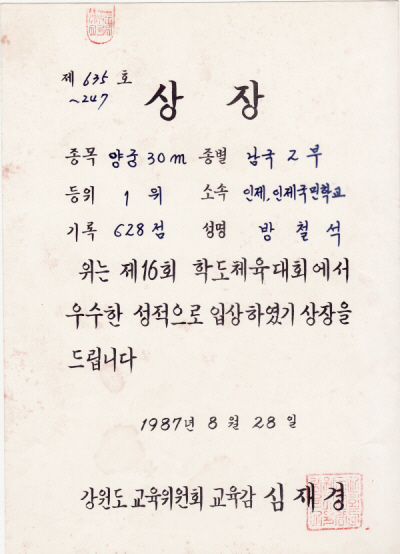 제 635 호
~247
상 장
종목 양궁 30m 종별 남국 2 부
등위 1 위 소속 인제, 인제국민학교
기록 628점 성명 방 철 석
위는 제16회 학도체육대회에서
우수한 성적으로 입상하였기 상장을
드립니다
1987년 8월 28일
강원도 교육위원회 교육감 심재경